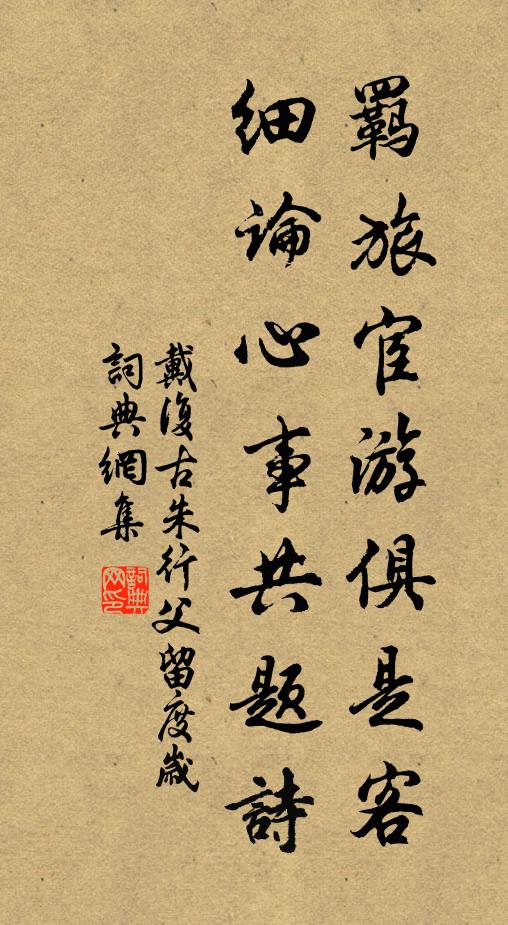 羈旅宦游俱是客
細論心事共題詩
戴復古朱行父留度歲
詞典網集
詞典网印